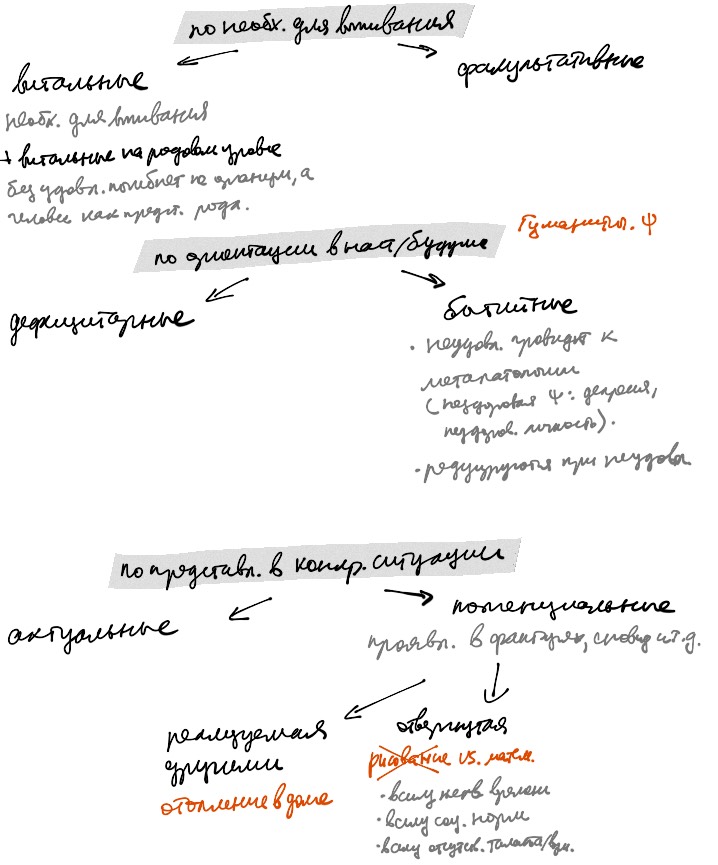 по необх. для выживания
витальные
факультативные
необх. для выживания
+ витальные на родовом уровне
без удовл. погибнет не организм, а
человек как предст. рода.
Гуманист. ψ
по ориентации в наст/будущее
дефицитарные
бытийные
• неудовл. приводит к
метапатологии
(нездоровая ψ: депрессия,
нездоров. личность).
• редуцируются при неудовл
по представл. в конкр. ситуации
актуальные
потенциальные
проявл. в фантазиях, сновид и т.д.
реализуемая
другими
отвергнутая
рисование vs. матем.
отопление в доме
• в силу нехв времени
• в силу соц. норм
• в силу отсутств. таланта/